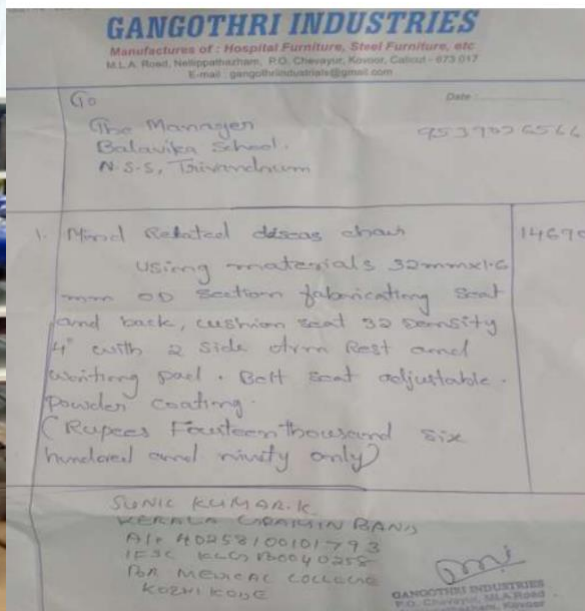 GANGOTHRI INDUSTRIES
Manufactures of : Hospital Furniture, Steel Furniture, etc
M.L.A. Road, Nellippathazham, P.O. Chevayur, Kovoor, Calicut - 673 017
E-mail : gangothriindustrials@gmail.com
To
Date :
The Manager
Balavika School.
N.S.S, Trivandrum
1. Mind Related diseas chair
14690
Using materials 32mmx1.6
mm OD Section fabricating Seat
and back, cushion seat 32 Density
4" with 2 side Arm Rest and
writing pad. Belt seat adjustable.
Powder coating.
(Rupees Fourteen thousand six
hundered and ninity only)
SUNIL KUMAR.K
KERALA GRAMIN BANK
A/c 40258100101793
IFSC
MEDICAL COLLEGE
KOZHIKODE
GANGOTHRI INDUSTRIES
P.O. Chevayur, MLA Road